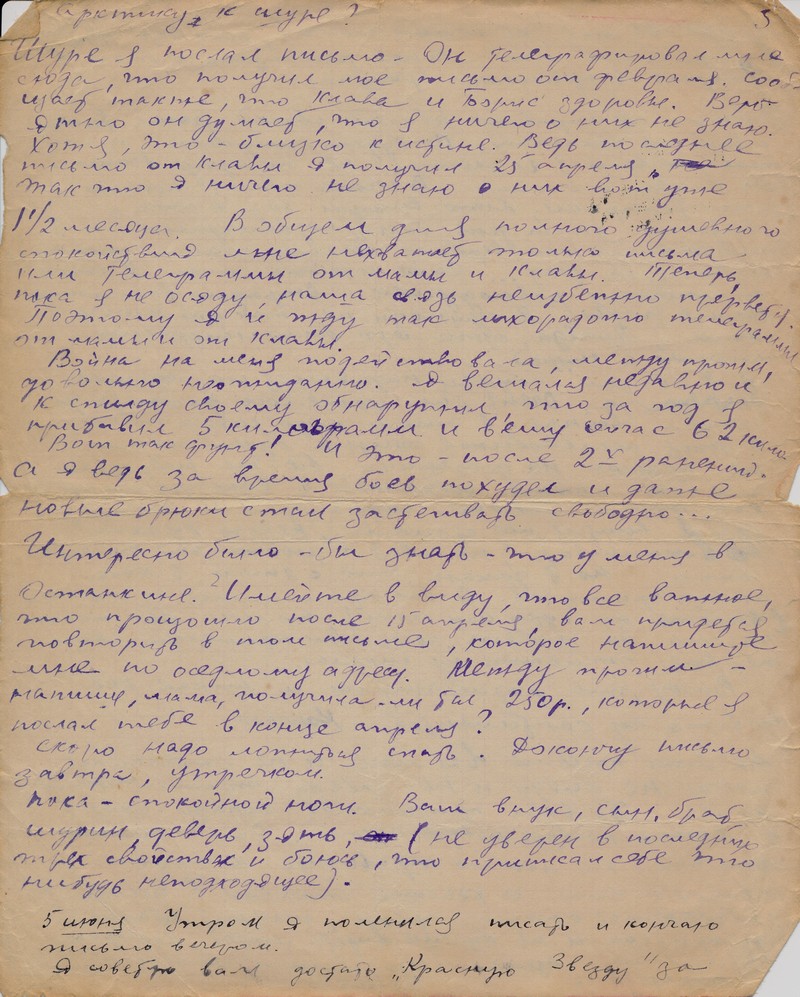 Арктику, к Шуре? 5
Шуре я послал письмо - Он телеграфировал мне
сюда, что получил мое письмо от февраля. Сооб-
щает также, что Клава и Борис здоровы. Веро-
ятно он думает, что я ничего о них не знаю.
Хотя, это - близко к истине. Ведь последнее
письмо от Клавы я получил 25 апреля,
так что я ничего не знаю о них вот уже
1 1/2 месяца. В общем для полного душевного
спокойствия мне нехватает только письма
или телеграммы от мамы и Клавы. Теперь,
пока я не осяду, наша связь неизбежно прервется.
Поэтому я и жду так лихорадочно телеграммы
от мамы и от Клавы.
Война на меня подействовала, между прочим,
довольно неожиданно. Я вешался недавно и
к стыду своему обнаружил, что за год я
прибавил 5 килограмм и вешу сейчас 62 кило.
Вот так фунт! И это - после 2х ранений.
А я ведь за время боев похудел и даже
новые брюки стал застегивать свободно...
Интересно было-бы знать - что у меня в
Останкине? Имейте в виду, что все важное,
что произошло после 15 апреля, вам придется
повторить в том письме, которое напишите
мне по оседлому адресу. Между прочим -
напиши, мама, получила-ли ты 250 р., которые я
послал тебе в конце апреля?
Скоро надо ложиться спать. Докончу письмо
завтра, утречком.
Пока - спокойной ночи. Ваш внук, сын, брат
шурин, деверь, зять, (не уверен в последних
трех свойствах и боюсь, что приписал себе что
нибудь неподходящее).
5 июня Утром я поленился писать и кончаю
письмо вечером.
Я советую вам достать „Красную Звезду" за